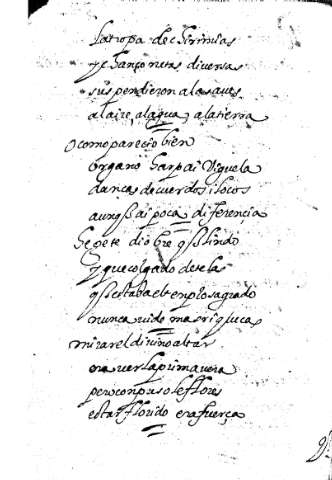 la tropa de chirimias
y chançonetas diversas
suspendieron a las aues
al aire, al agua, a la tierra
O como parecio bien
organo harpa i viguela
danças de cuerdos i locos
aunq̃ ai poca diferençia
he q̃ lindo
y que colgado de telas
q̃ estaba el templo sagrado
nunca vido mas riqueça
mirar el divino altar
era ver la primavera
pero con puso le flores
estar florido era fuerça